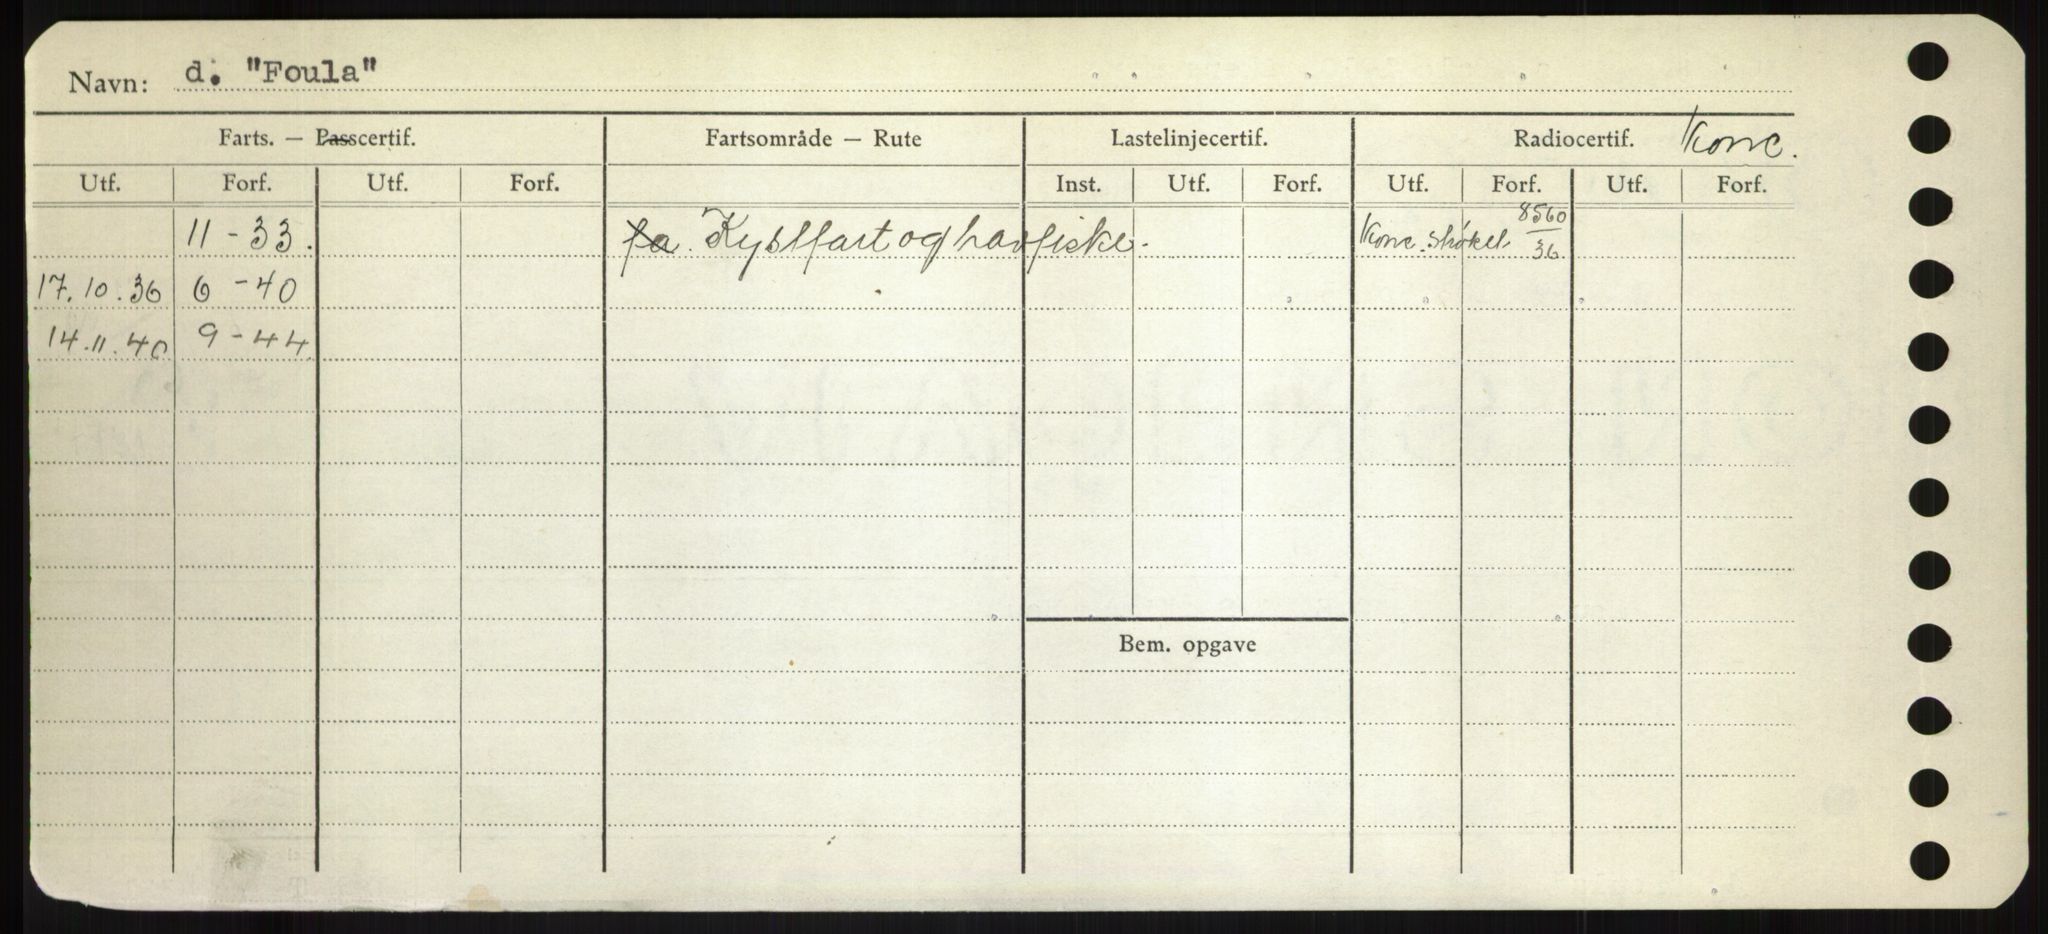 Navn: d. "Foula"
Farts. — Passcertif. Fartsområde — Rute Lastelinjecertif. Radiocertif. Konc.
Utf. Forf. Utf. Forf. Inst. Utf. Forf. Utf. Forf. Utf. Forf.
11 - 33. fa. Kystfart og havfiske. Konc. strøket 8560/36
17.10.36 6 - 40
14.11.40 9 - 44
Bem. opgave